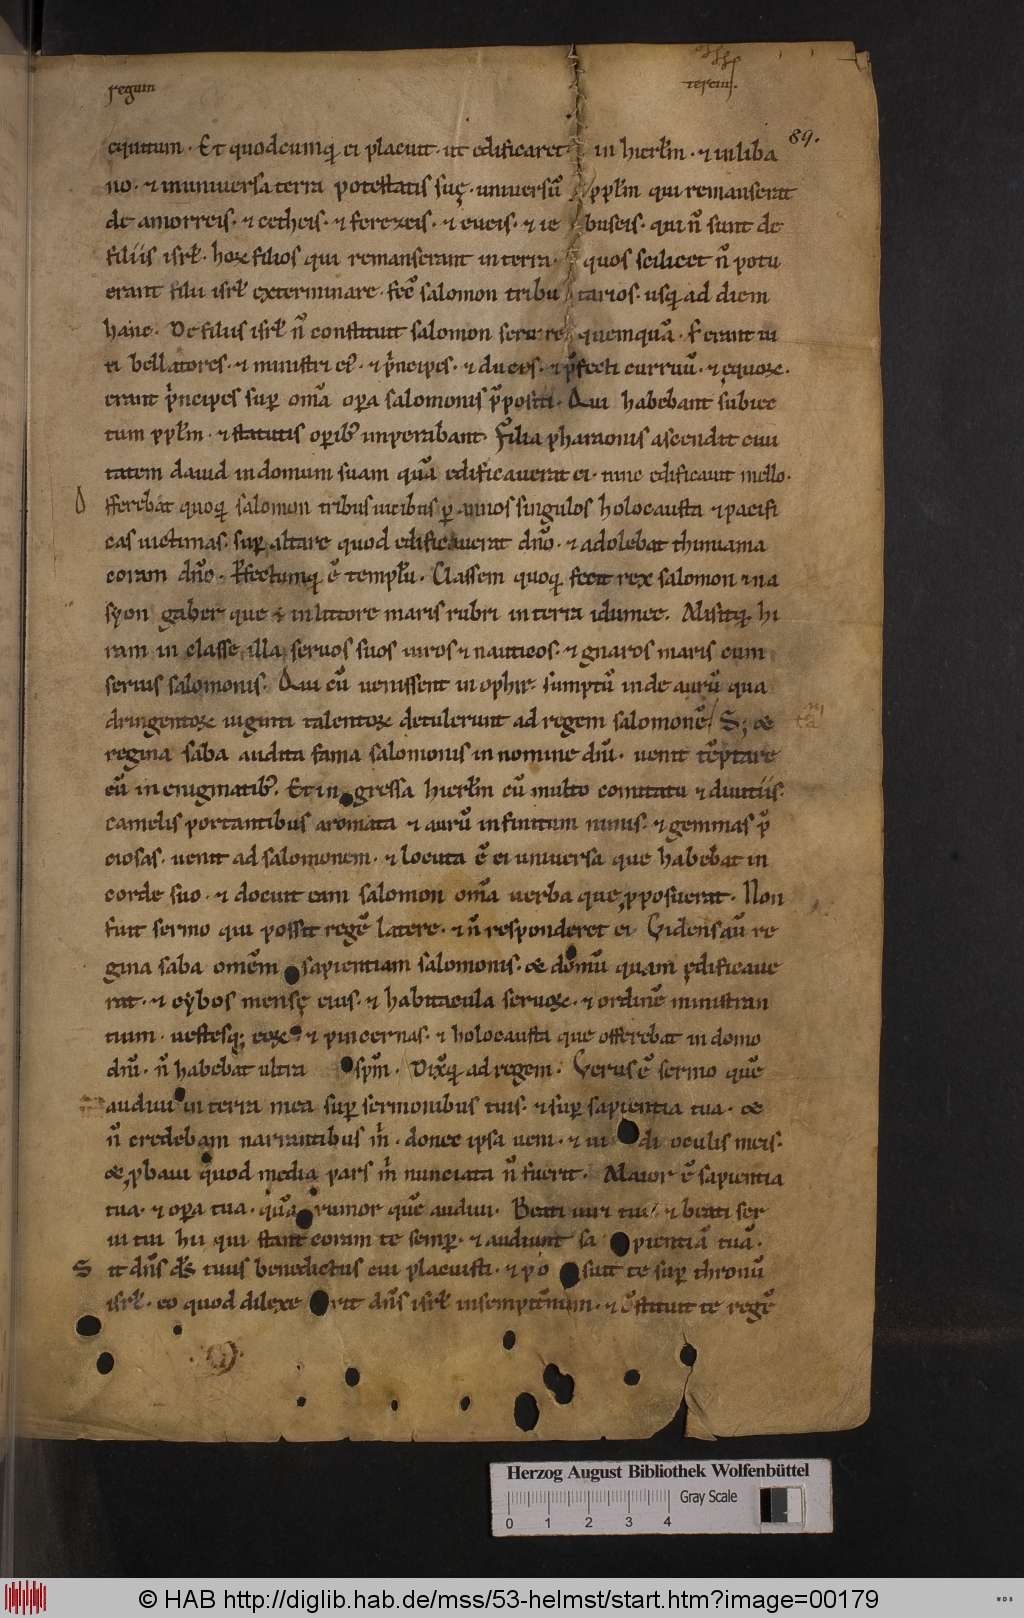 regum
tercius.
89.
equitum · Et quodcumq; ei placuit · ut edificaret · in hierl̄m · ⁊ in liba
no · ⁊ in universa terra potestatis suę · universū pp̄lm qui remanserat
de amorreis · ⁊ cetheis · ⁊ ferezeis · ⁊ eveis · ⁊ ie buseis · qui n̄ sunt de
filiis isrł · hoꝝ filios qui remanserant in terra · quos scilicet n̄ potu
erant filii isrł exterminare · fec̄ salomon tribu tarios · usq; ad diem
hanc · De filiis isrł n̄ constituit salomon servire quemquā · S; erant ui
ri bellatores · ⁊ ministri ei᷒ · ⁊ p̍ncipes · ⁊ duces · ⁊ p̄fecti curruū · ⁊ equoꝝ ·
erant p̍ncipes sup̄ om̄a op̄a salomonis p̄positi · Qui habebant subiec
tum pp̄lm · ⁊ statutis op̄ib; imperabant · Filia pharaonis ascendit civi
tatem david in domum suam quā edificaverat ei · tunc edificavit mello ·
O fferebat quoq; salomon tribus vicibus ꝑ annos singulos holocausta ⁊ pacifi
cas victimas · sup̄ altare quod edificaverat dn̄o · ⁊ adolebat thimiama
coram dn̄o · ꝑfectumq; ē templū · Classem quoq; fecit rex salomon in a
syon gaber que ē in littore maris rubri in terra idumee · Misitq; hi
ram in classe illa servos suos viros ⁊ nauticos · ⁊ gnaros maris cum
servis salomonis · Qui cū venissent in ophir · sumptū inde aurū qua
dringentoꝝ viginti talentoꝝ detulerunt ad regem salomonē / S; ⁊
regina saba audita fama salomonis in nomine dn̄i · venit tēptare
eū in enigmatib; · Et in gressa hierl̄m cū multo comitatu ⁊ divitiis ·
camelis portantibus aromata ⁊ aurū infinitum nimis · ⁊ gemmas p̄
ciosas · venit ad salomonem · ⁊ locuta ē ei universa que habebat in
corde suo · ⁊ docuit eam salomon om̄a verba que ꝓposuerat · Non
fuit sermo qui possit regē latere · ⁊ n̄ responderet ei · Videns aū re
gina saba omēm sapientiam salomonis · ⁊ domū quam edificave
rat · ⁊ cybos mensę eius · ⁊ habitacula servoꝝ · ⁊ ordinē ministran
tium · vestesq; eoꝝ ⁊ pincernas · ⁊ holocausta que offerebat in domo
dn̄i · n̄ habebat ultra sp̄m · Dixq; ad regem · Verus ē sermo quē
audivi in terra mea sup̄ sermonibus tuis · ⁊ sup̄ sapientia tua · ⁊
n̄ credebam narrantibus m̍ · donec ipsa veni · ⁊ vi di oculis meis ·
⁊ ꝓbavi quod media pars m̍ nunciata n̄ fuerit · Maior ē sapientia
tua · ⁊ op̄a tua · quā rumor quē audivi · Beati viri tui / ⁊ beati ser
vi tui hii qui stant coram te semp̄ · ⁊ audiunt sa pientiā tuā ·
S it dn̄s d̄s tuus benedictus cui placuisti · ⁊ po suit te sup̄ thronū
isrł · eo quod dilexe rit dn̄s isrł in sempit̄num · ⁊ ꝯstituit te regē
Herzog August Bibliothek Wolfenbüttel
Gray Scale
0 1 2 3 4
© HAB http://diglib.hab.de/mss/53-helmst/start.htm?image=00179